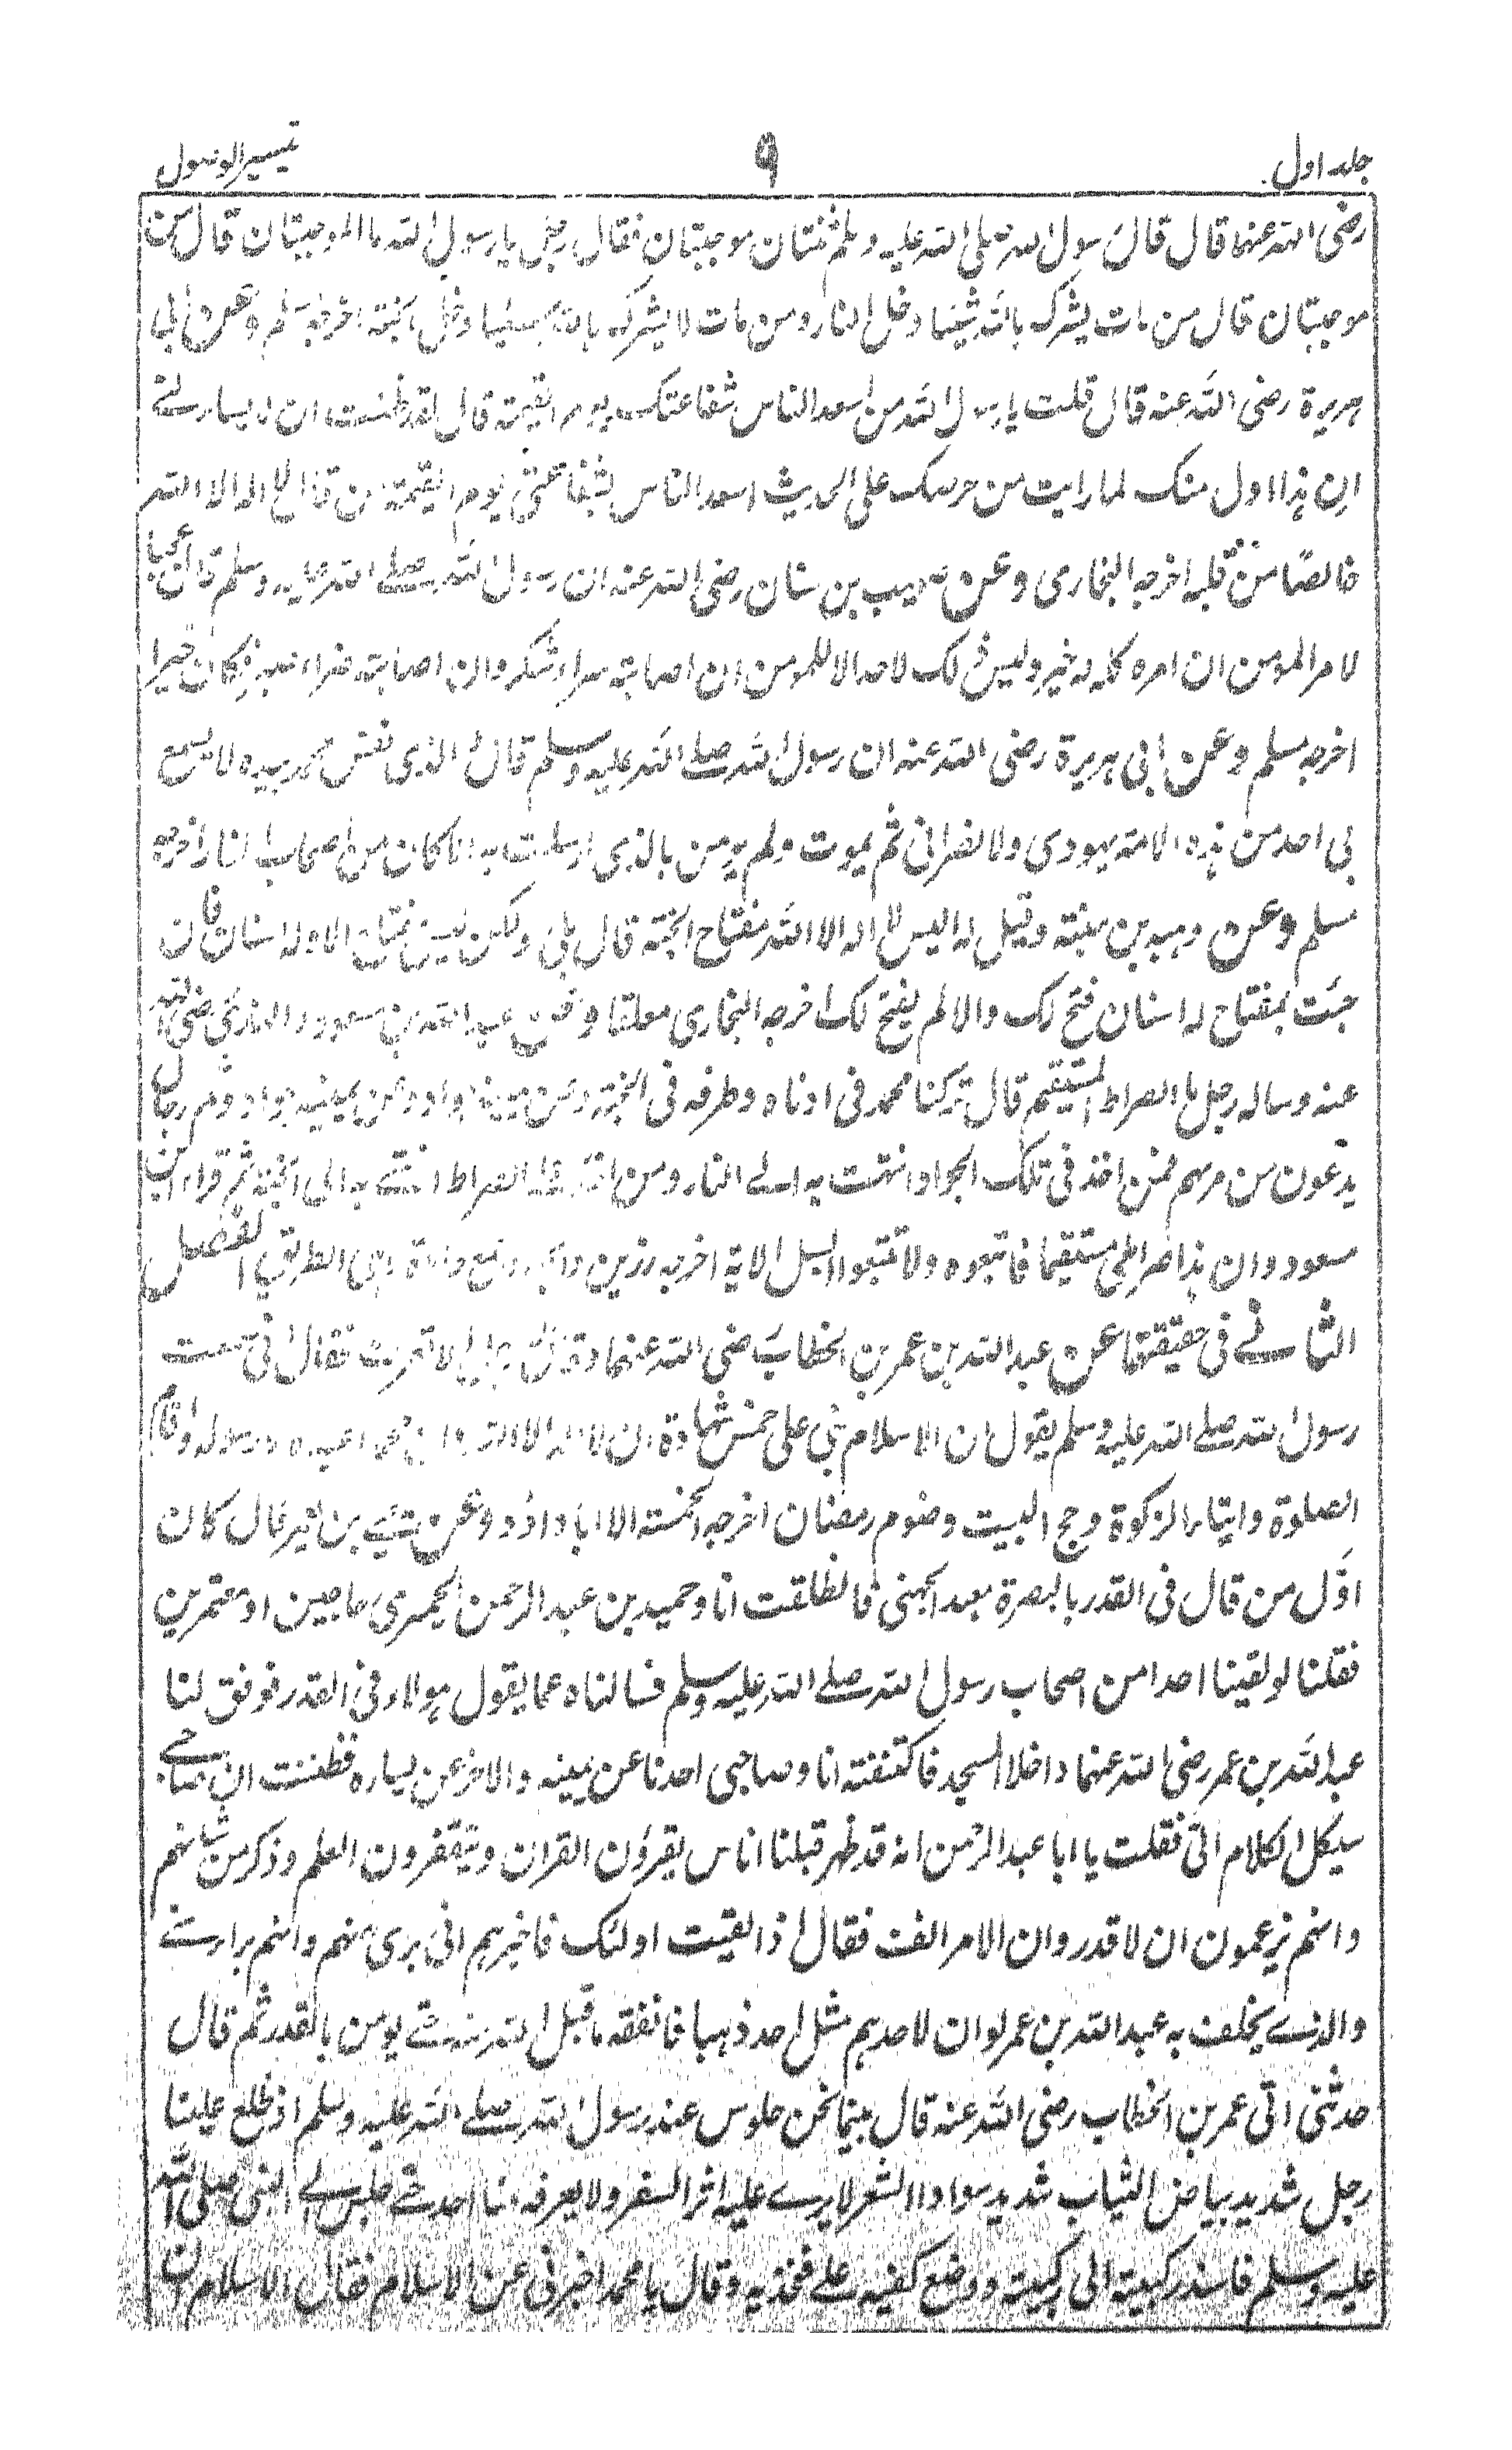 جلد اول
۹
تیسیر الوصول
رضی الله عنهما قال قال رسول الله صلی الله علیه وسلم ثنتان موجبتان فقال رجل یا رسول الله ما الموجبتان قال
موجبتان قال من مات یشرک بالله شیئا دخل النار ومن مات لا یشرک بالله شیئا دخل الجنة اخرجه مسلم وعن ابی
هریرة رضی الله عنه قال قلت یا رسول الله من اسعد الناس بشفاعتک یوم القیمة قال لقد ظننت ان لا یسألنے
ان هذا اول منک لما رایت من حرصک علی الحدیث اسعد الناس بشفاعتی یوم القیمة من قال لا اله الا الله
خالصًا من قلبه اخرجه البخاری وعن صهیب بن سنان رضی الله عنه ان رسول الله صلے الله علیه وسلم قال عجبا
لامر المومن ان امره کله له خیر ولیس ذلک لاحد الا للمومن ان اصابته سراء شکر وان اصابته ضراء صبر فکان خیرا
اخرجه مسلم وعن ابی هریرة رضی الله عنه ان رسول الله صلے الله علیه وسلم قال الذی نفس محمد بیده لا یسمع
بی احد من هذه الامة یهودی ولا نصرانی ثم یموت ولم یومن بالذی ارسلت به الا کان من اصحاب النار اخرجه
مسلم وعن وهب بن منبه وقیل له الیس لا اله الا الله مفتاح الجنة قال بلی ولکن لیس مفتاح الا وله اسنان فان
جئت بمفتاح له اسنان فتح لک والا لم یفتح لک اخرجه البخاری معلقا وعن عبد الله بن مسعود رضی الله
عنه وساله رجل ما الصراط المستقیم قال ترکنا محمد فی ادناه وطرفه فی الجنة وعن یمینه جواد وثم رجال
یدعون من مر بهم فمن اخذ فی تلک الجواد انتهت به الے النار ومن اخذ علی الصراط انتهے به الی الجنة ثم قرا ابن
مسعود وان هذا صراطی مستقیما فاتبعوه ولا تتبعوا السبل الایة اخرجه رزین وهی الطریق الفصل
الثانے فی حقیقتها عن عبد الله بن عمر بن الخطاب رضی الله عنهما وقال له رجل الا تغزو فقال انی سمعت
رسول الله صلے الله علیه وسلم یقول ان الاسلام بنی علی خمس شهادة ان لا اله الا الله وان محمدا عبده ورسوله واقام
الصلوة وایتاء الزکوة وحج البیت وصوم رمضان اخرجه الخمسة الا ابا داؤد وعن یحیے بن یعمر قال کان
اوّل من قال فی القدر بالبصرة معبد الجهنی فانطلقت انا وحمید بن عبد الرحمن الحمیری حاجین او معتمرین
فقلنا لو لقینا احدا من اصحاب رسول الله صلے الله علیه وسلم فسالناه عما یقول هولاء فی القدر فوفق لنا
عبد الله بن عمر رضی الله عنهما داخلا المسجد فاکتنفته انا وصاحبی احدنا عن یمینه والاخر عن یساره فظننت ان صاحبے
سیکل الکلام الی فقلت یا ابا عبد الرحمن انه قد ظهر قبلنا اناس یقرؤن القران ویتقفرون العلم وذکر من شانهم
وانهم یزعمون ان لا قدر وان الامر انف فقال اذا لقیت اولئک فاخبرهم انی بری منهم وانهم براء منے
والذے یحلف به عبد الله بن عمر لو ان لاحدهم مثل احد ذهبا فانفقه ما قبل الله منه حتے یومن بالقدر ثم قال
حدثنی ابی عمر بن الخطاب رضی الله عنه قال بینما نحن جلوس عند رسول الله صلے الله علیه وسلم اذ طلع علینا
رجل شدید بیاض الثیاب شدید سواد الشعر لا یرے علیه اثر السفر ولا یعرفه منا احد حتے جلس الے النبی صلی الله
علیه وسلم فاسند رکبتیه الی رکبتیه ووضع کفیه علے فخذیه وقال یا محمد اخبرنی عن الاسلام فقال الاسلام ان